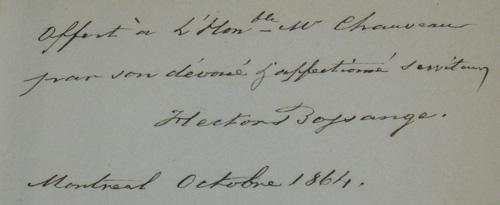 Offert à L'Hon^ble M^r Chauveau
par son dévoué & affectionné serviteur
Hector Bossange.
Montreal Octobre 1864.